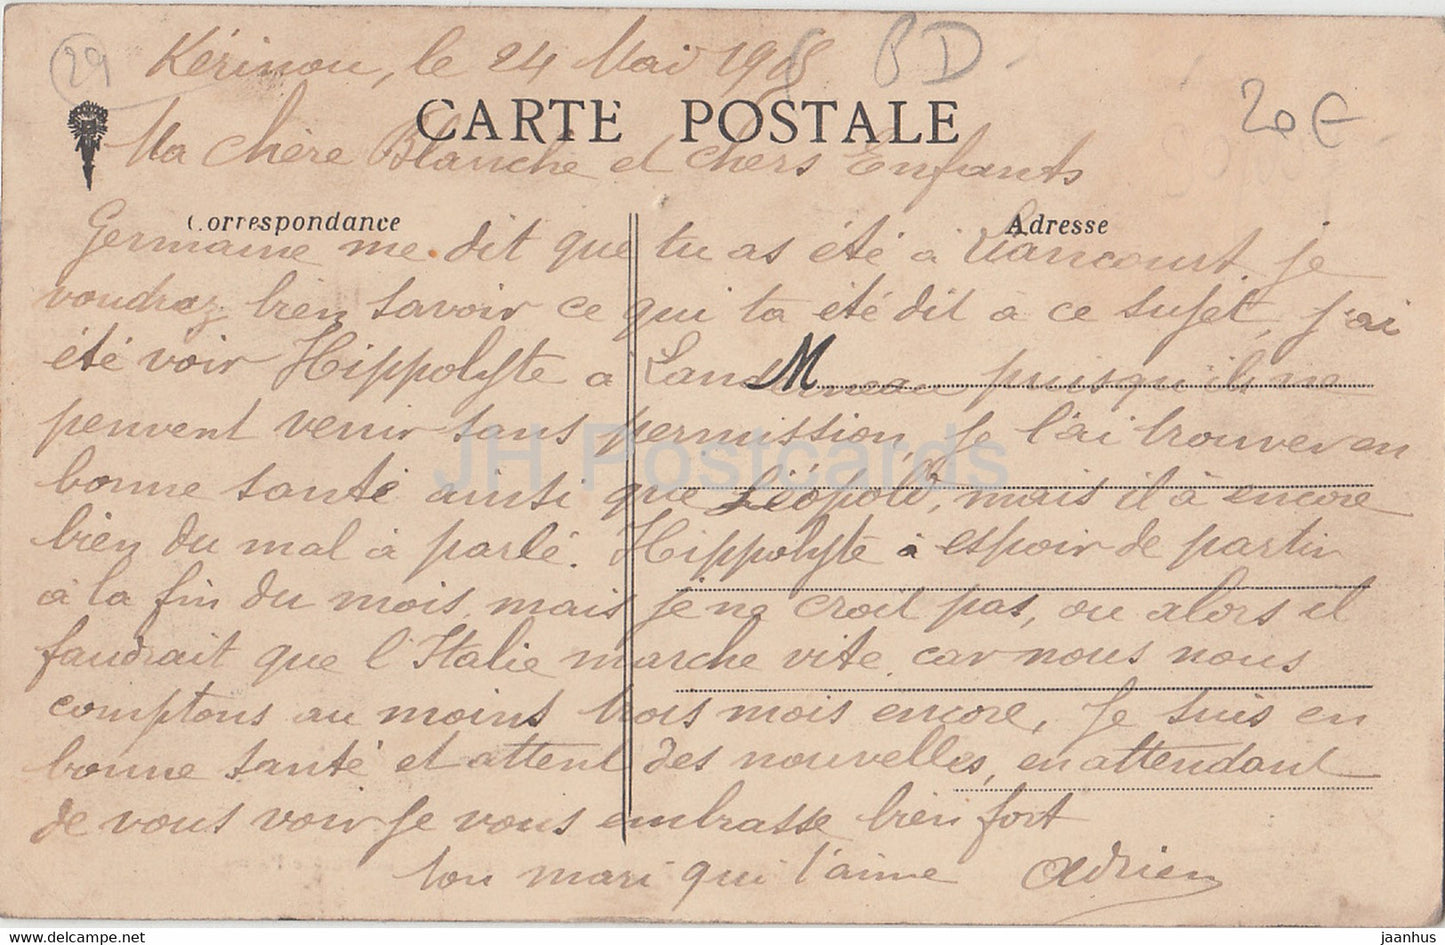 29
Kérinou, le 24 Mai 1915
BD
20€
CARTE POSTALE
Ma chère Blanche et chers Enfants
Correspondance
Adresse
Germaine me dit que tu as été à Liancourt, je
voudraz bien savoir ce qui ta été dit à ce sujet, j'ai
été voir Hippolyte à Landerneau puisqu'ils ne
M
peuvent venir sans permission, Je l'ai trouver en
bonne santé ainsi que Léopold, mais il à encore
bien du mal à parlé. Hippolyte à espoir de partir
à la fin du mois, mais je ne croit pas, ou alors il
faudrait que l'Italie marche vite, car nous nous
comptons au moins trois mois encore, Je suis en
bonne santé et attent des nouvelles, en attendant
de vous voir Je vous embrasse bien fort
ton mari qui t'aime Adrien
JH Postcards
hippostcard.com/store/jh-postcards
jaanhus